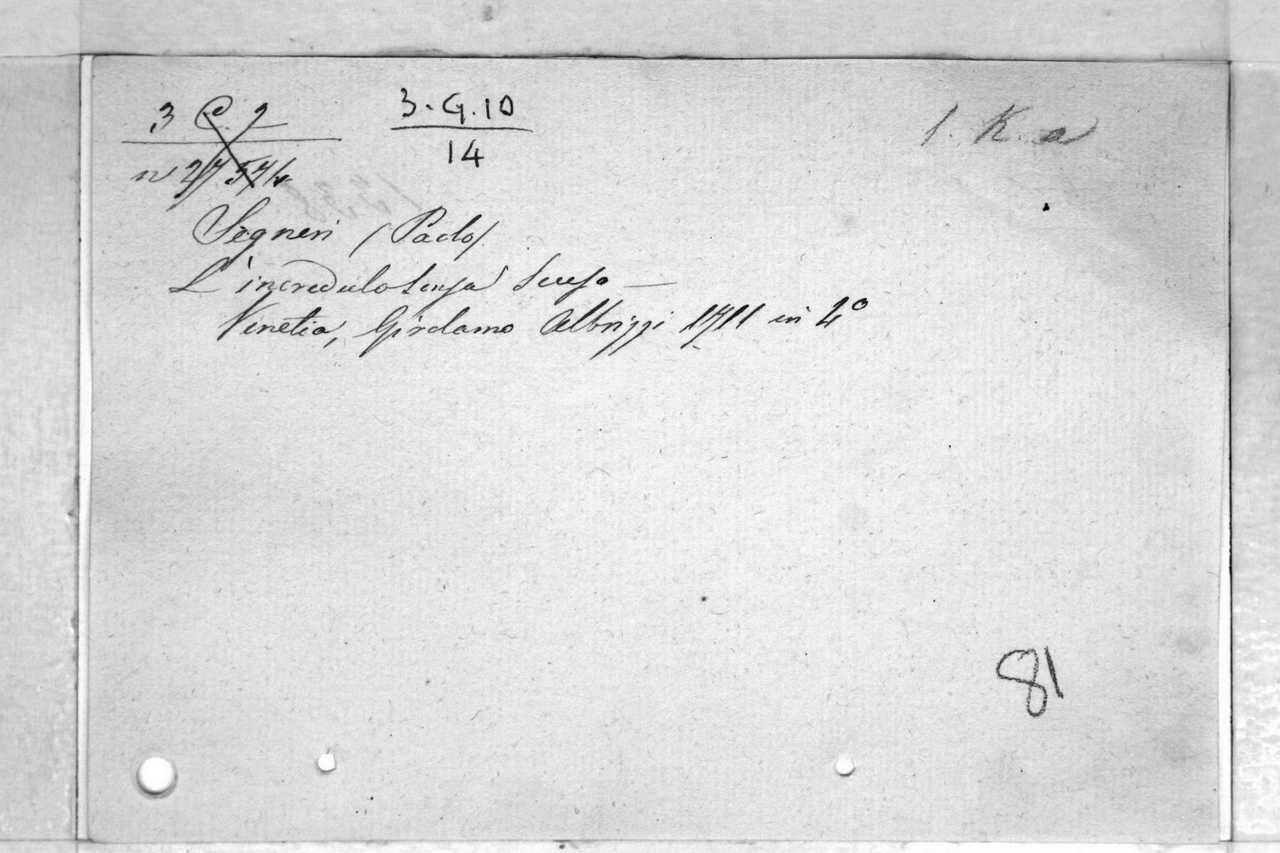 3 C 2
3. G. 10
14
1. K. a
n 27
Segneri (Paolo)
L'incredulo senza scusa —
Venetia, Girolamo Albrizzi 1711 in 4º
81